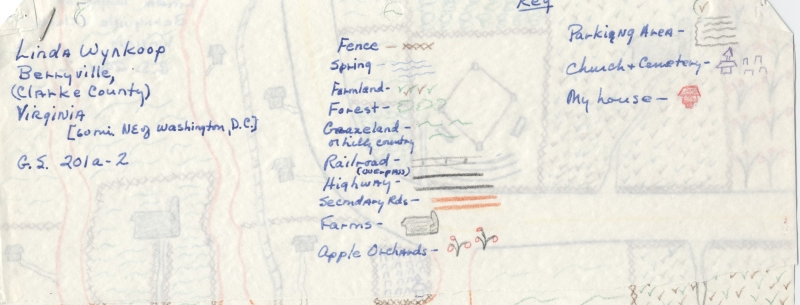 Key
Linda Wynkoop
Berryville,
(Clarke County)
Virginia
[60 mi. NE of Washington, D.C.]
G.S. 201a-2
Fence -
Spring -
Farmland -
Forest -
Grazeland -
or hilly country
Railroad -
(overpass)
Highway -
Secondary Rds -
Farms -
Apple Orchards -
Parkiqng Area -
Church + Cemetery -
My house -